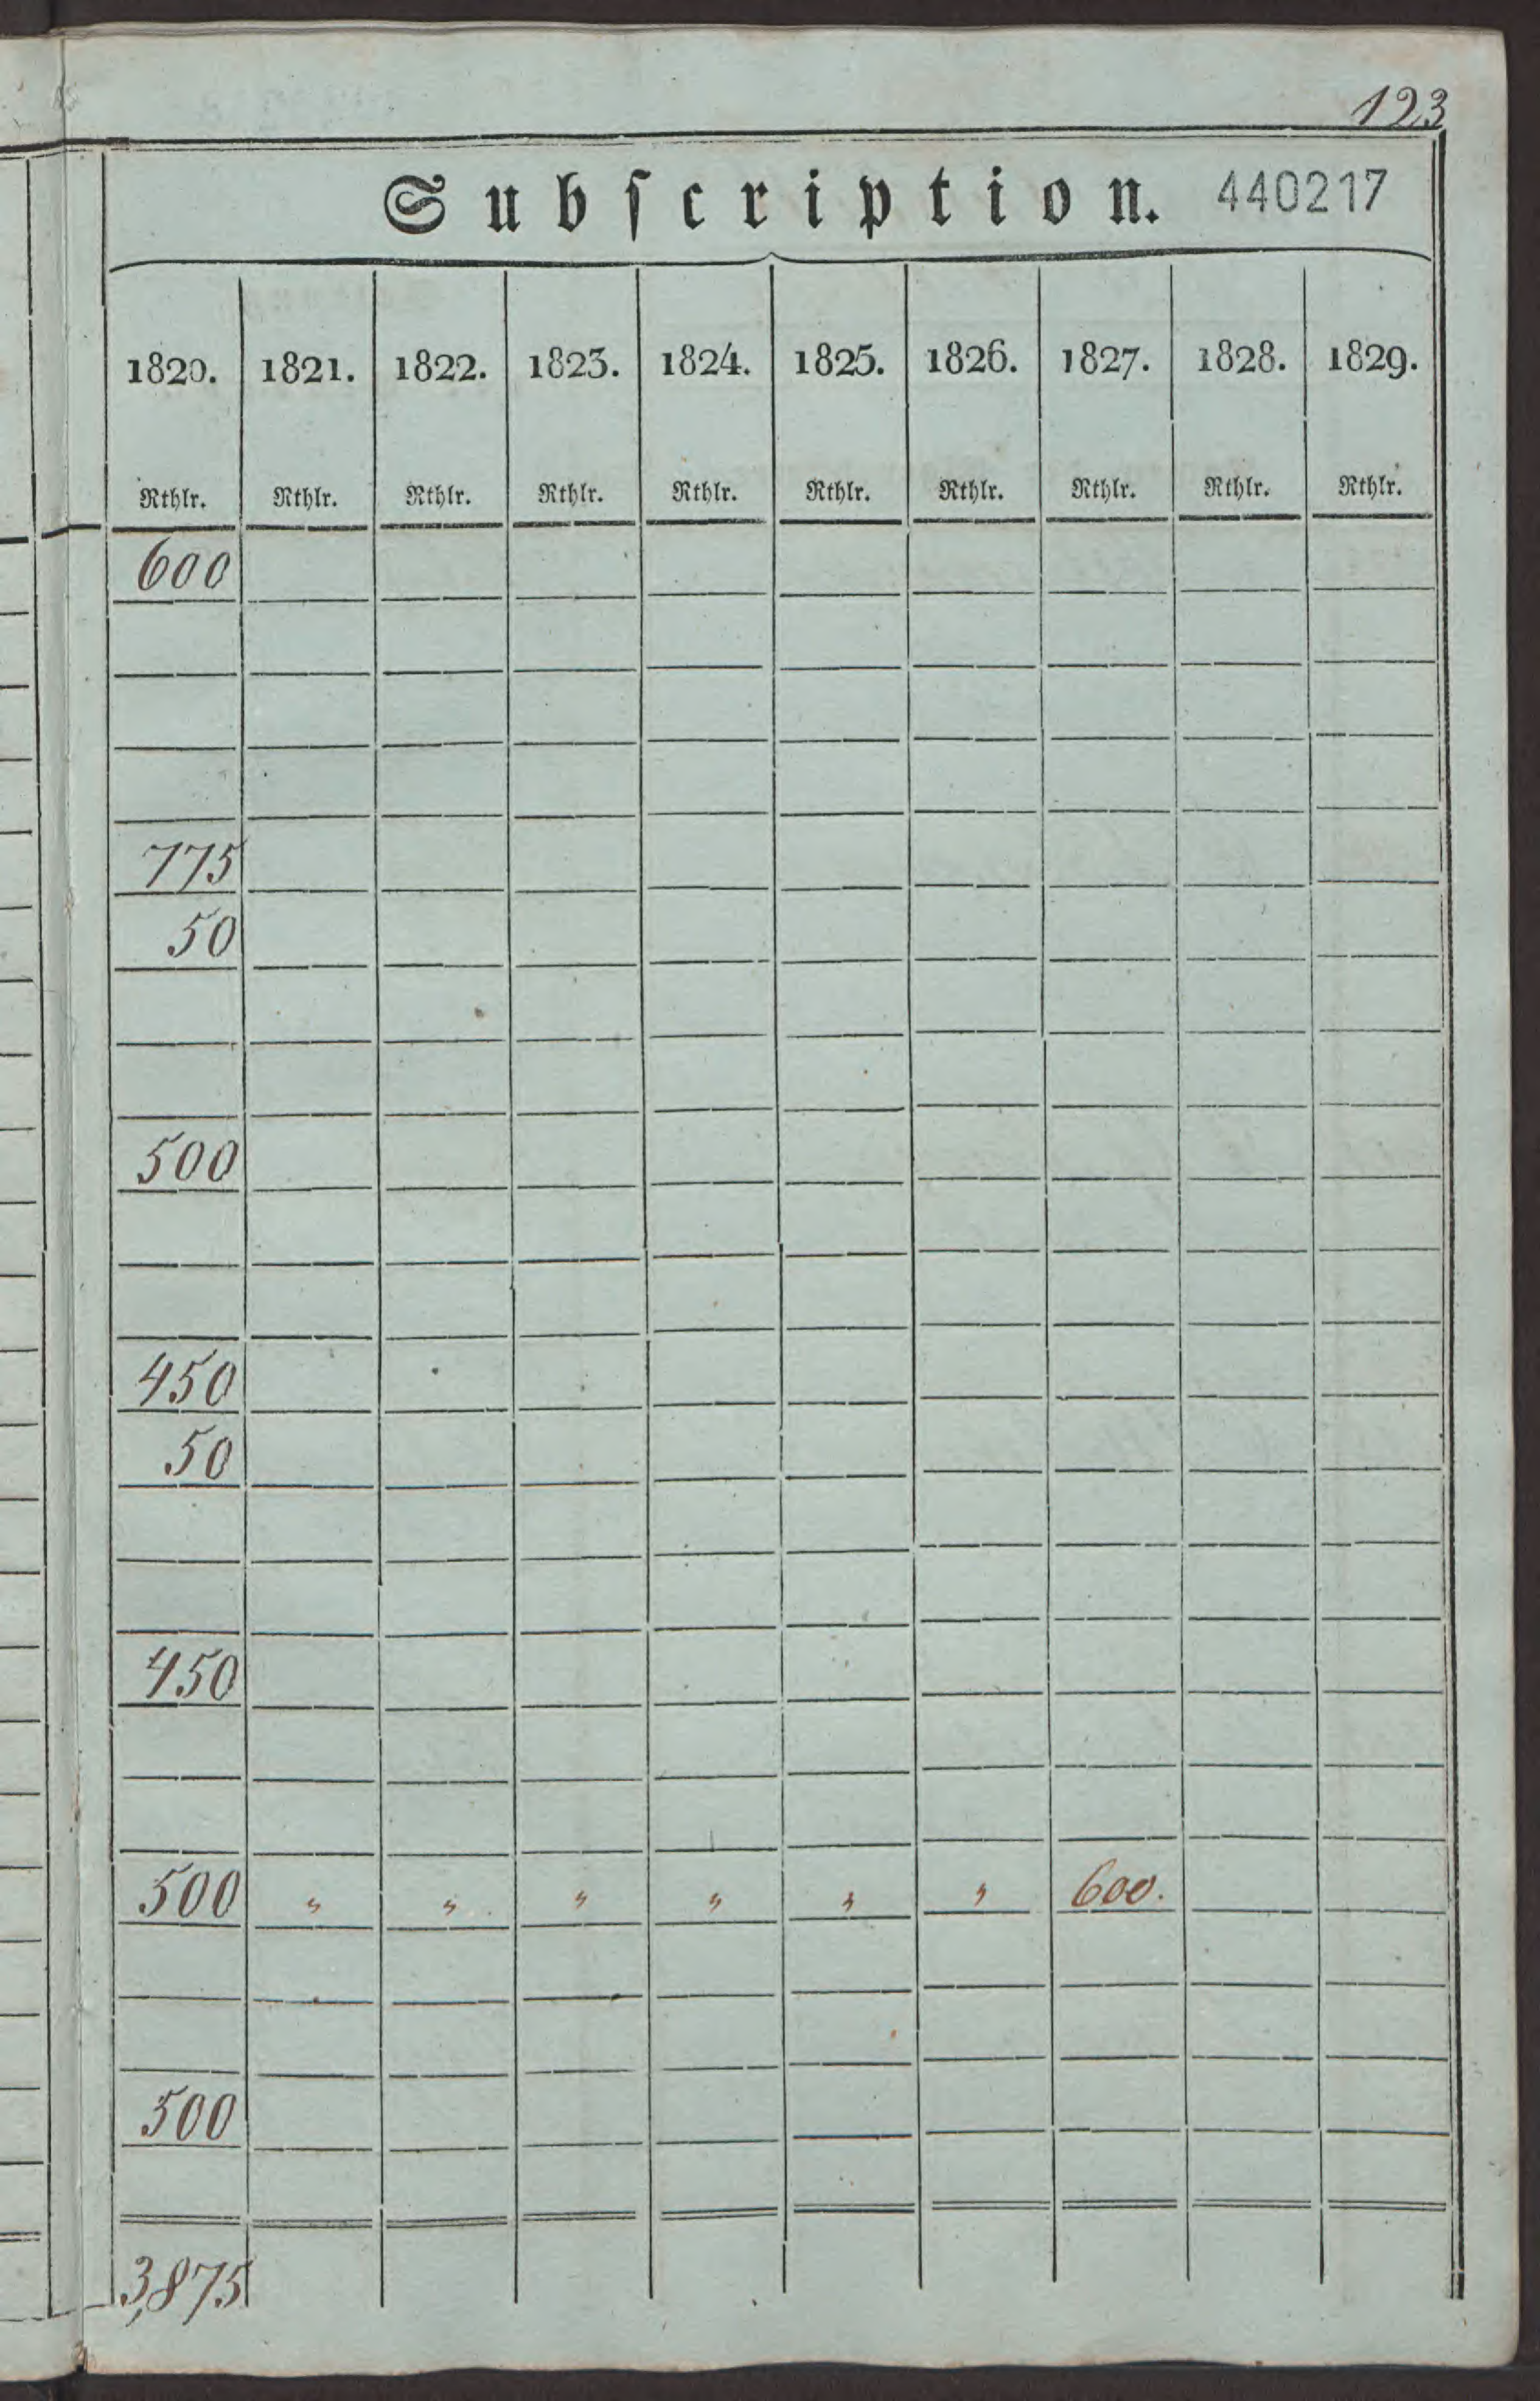 123
Subſcription. 440217
1820. 1821. 1822. 1823. 1824. 1825. 1826. 1827. 1828. 1829.
Rthlr. Rthlr. Rthlr. Rthlr. Rthlr. Rthlr. Rthlr. Rthlr. Rthlr. Rthlr.
600
775
50
500
450
50
450
500 " " " " " " 600.
500
3,875